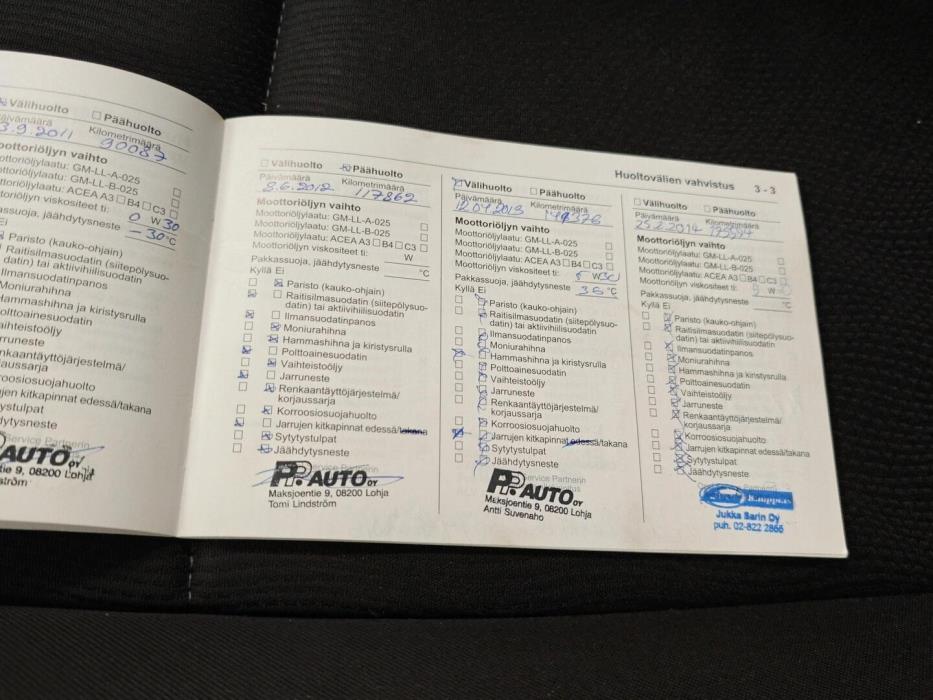 Välihuolto Päähuolto
Päivämäärä Kilometrimäärä
3.9.2011 90087
Moottoriöljyn vaihto
Moottoriöljylaatu: GM-LL-A-025
Moottoriöljylaatu: GM-LL-B-025
Moottoriöljylaatu: ACEA A3 B4 C3
0 W 30
jäähdytysneste -30 °C
Ei
Paristo (kauko-ohjain)
Raitisilmasuodatin (siitepölysuo-
datin) tai aktiivihiilisuodatin
Ilmansuodatinpanos
Moniurahihna
Hammashihna ja kiristysrulla
Polttoainesuodatin
Vaihteistoöljy
Jarruneste
Renkaantäyttöjärjestelmä/
korjaussarja
Korroosiosuojahuolto
Jarrujen kitkapinnat edessä/takana
Sytytystulpat
Jäähdytysneste
Service Partnerin
AUTO OY
tie 9, 08200 Lohja
ström
Välihuolto Päähuolto
Päivämäärä Kilometrimäärä
8.6.2012 117862
Moottoriöljyn vaihto
Moottoriöljylaatu: GM-LL-A-025
Moottoriöljylaatu: GM-LL-B-025
Moottoriöljylaatu: ACEA A3 B4 C3
Moottoriöljyn viskositeet ti: W
Pakkassuoja, jäähdytysneste °C
Kyllä Ei
Paristo (kauko-ohjain)
Raitisilmasuodatin (siitepölysuo-
datin) tai aktiivihiilisuodatin
Ilmansuodatinpanos
Moniurahihna
Hammashihna ja kiristysrulla
Polttoainesuodatin
Vaihteistoöljy
Jarruneste
Renkaantäyttöjärjestelmä/
korjaussarja
Korroosiosuojahuolto
Jarrujen kitkapinnat edessä/takana
Sytytystulpat
Jäähdytysneste
Service Partnerin
PP. AUTO OY
Maksjoentie 9, 08200 Lohja
Tomi Lindström
Huoltovälien vahvistus 3 - 3
Välihuolto Päähuolto
Päivämäärä Kilometrimäärä
12.04.2013
Moottoriöljyn vaihto
Moottoriöljylaatu: GM-LL-A-025
Moottoriöljylaatu: GM-LL-B-025
Moottoriöljylaatu: ACEA A3 B4 C3
Moottoriöljyn viskositeet ti: 5 W 30
Pakkassuoja, jäähdytysneste 36 °C
Kyllä Ei
Paristo (kauko-ohjain)
Raitisilmasuodatin (siitepölysuo-
datin) tai aktiivihiilisuodatin
Ilmansuodatinpanos
Moniurahihna
Hammashihna ja kiristysrulla
Polttoainesuodatin
Vaihteistoöljy
Jarruneste
Renkaantäyttöjärjestelmä/
korjaussarja
Korroosiosuojahuolto
Jarrujen kitkapinnat edessä/takana
Sytytystulpat
Jäähdytysneste
Service Partnerin
PP. AUTO OY
Maksjoentie 9, 08200 Lohja
Antti Suvenaho
Välihuolto Päähuolto
Päivämäärä Kilometrimäärä
25.2.2014
Moottoriöljyn vaihto
Moottoriöljylaatu: GM-LL-A-025
Moottoriöljylaatu: GM-LL-B-025
Moottoriöljylaatu: ACEA A3 B4 C3
Moottoriöljyn viskositeet ti: W
Pakkassuoja, jäähdytysneste °C
Kyllä Ei
Paristo (kauko-ohjain)
Raitisilmasuodatin (siitepölysuo-
datin) tai aktiivihiilisuodatin
Ilmansuodatinpanos
Moniurahihna
Hammashihna ja kiristysrulla
Polttoainesuodatin
Vaihteistoöljy
Jarruneste
Renkaantäyttöjärjestelmä/
korjaussarja
Korroosiosuojahuolto
Jarrujen kitkapinnat edessä/takana
Sytytystulpat
Jäähdytysneste
Jukka Sarin Oy
puh. 02-822 2866